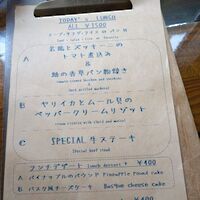 TODAY's LUNCH
ALL ¥1500
スープ・サラダ・ライス or パン付
A
若鶏とズッキーニの
トマト煮込み
&
鯖の香草パン粉焼き
B
ヤリイカとムール貝の
ペッパークリームリゾット
C
SPECIAL 牛ステーキ
ランチデザート lunch dessert ¥400
A パイナップルのパウンド Pineapple Pound cake
B バスク風チーズケーキ Basque cheese cake
¥400